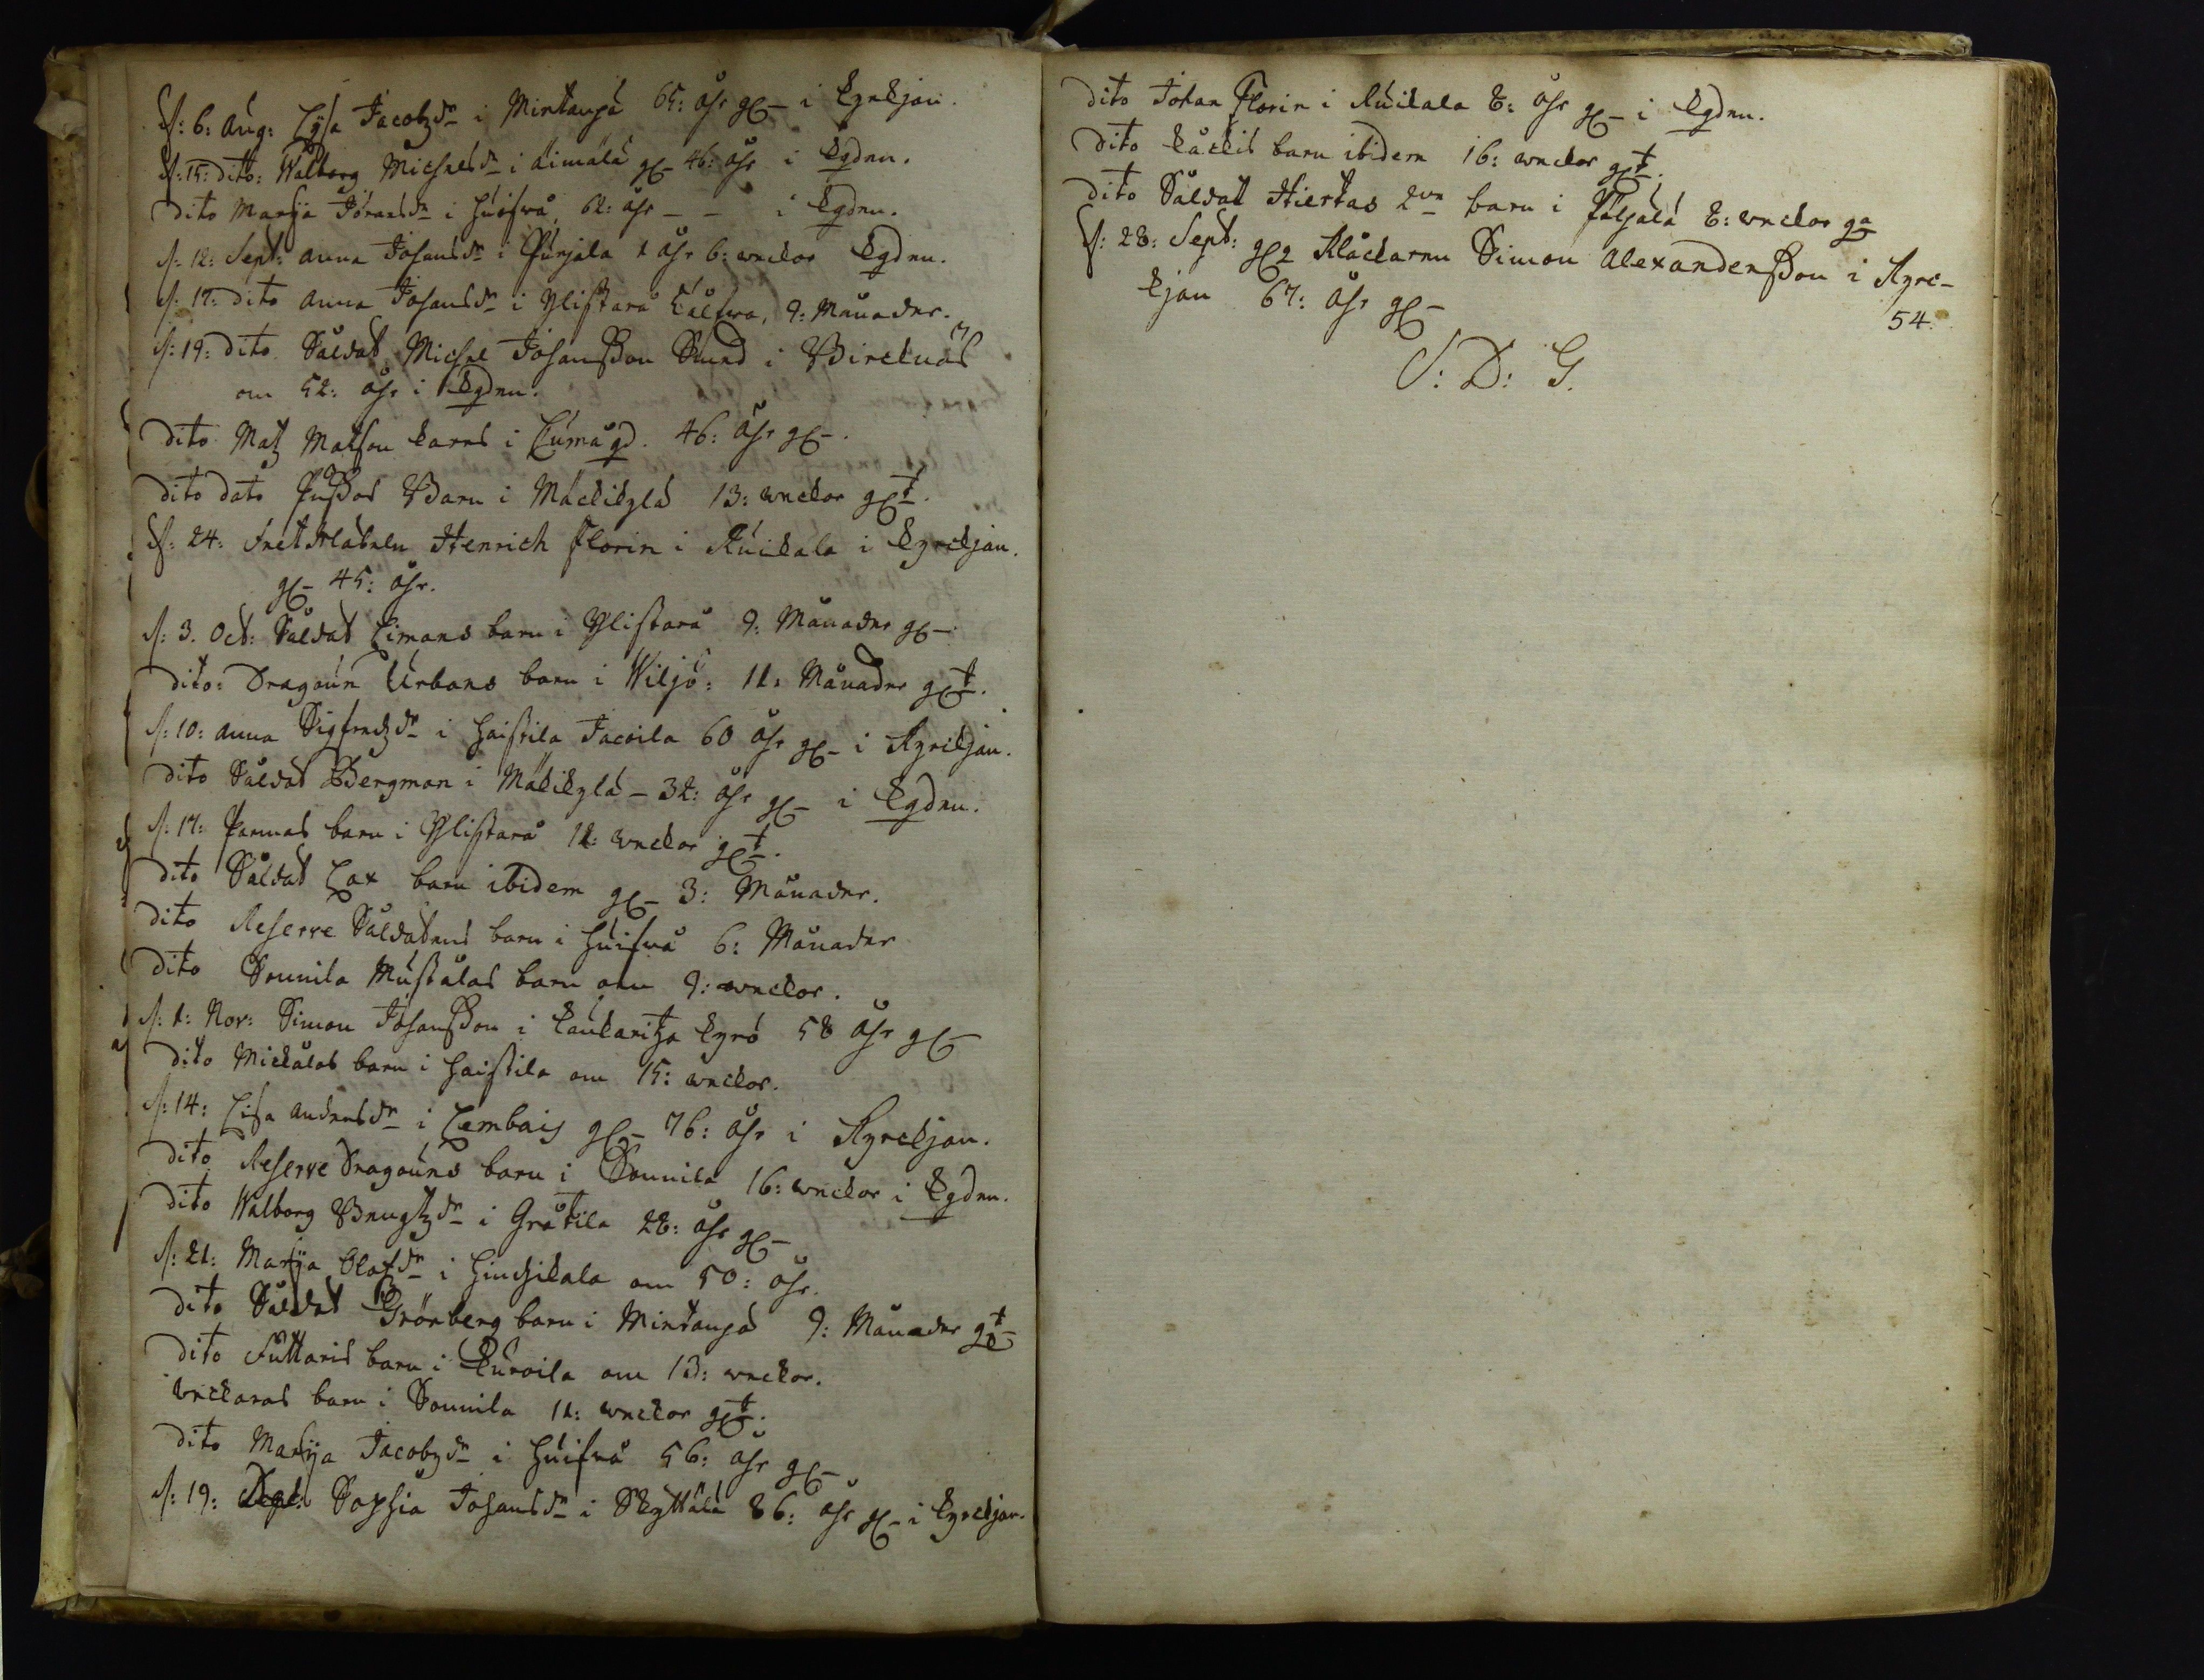 d: 6: Aug: Lysa Jacobzdr i Mintanpä 65: åhr gl i kyrkjan.
d: 15: dito: Walborg Michelsdr i Aimälä gl 46: åhr i kgden.
dito Marÿa Jöransdr i Huofwa, 62: åhr - - i kgden.
d: 12: Sept: Anna Johansdr i Purjala 1 åhr 6: weckor kgden.
d: 17: dito Anna Johansdr i Ylistarå kalfwa, 9: Månader.
d: 19: dito Såldat Michel Johansson Sund i Bircknäs
om 52: åhr i kgden.
dito Matz Matson karns i Cumågd. 46: åhr gl.
dito dato Pussas Barn i Mäckikylä 13: weckor gl†.
d: 24: Henrich Florin i Ruikala i kyrckjan.
gl 45: åhr.
d: 3. Oct: Såldat Limans barn i Ylistarå 9: Månader gl.
dito: Dragoun Urbans barn i Wiljo: 11: Månader gl†.
d: 10: Anna Sigfredzdr i Haistila Jacoila 60 åhr gl i Kyrckjan.
dito Såldat Bergman i Mäkikylä - 32: åhr gl i kgden.
d: 17: Parmas barn i Ylistarå 12: weckor gl†.
dito Såldat Lax barn ibidem gl 3: Månader.
dito Reserve Såldatens barn i Huifwa 6: Månader
dito Sunnila Mustalas barn om 9: weckor.
d: 1: Nov: Simon Johansson i Kaukaritza kyrö 58 åhr gl
dito Mickålas barn i Haistila om 15: weckor.
d: 14: Lisa Andersdr i Lembais gl 76: åhr i Kyrckjan.
dito Reserve Dragouns barn i Sunnila 16: weckor i kgden.
dito Walborg Bengtzdr i Gråtila 28: åhr gl
d: 21: Marÿa Olafsdr i Hindikala om 50: åhr.
dito Såldat Grönberg barn i Mintanpä 9: Månader gl†
dito Suttaris barn i Kuroila om 13: weckor.
Weckaras barn i Sunnila 11: weckor gl†.
dito Marÿa Jacobzdr i Huifwa 56: åhr gl
d: 19: Sophia Johansdr i Skyttälä 86: åhr gl i kyrckjan.
dito Johan Florin i Ruikala 8: åhr gl i kgden.
dito barn ibidem 16: weckor gl†.
dito Såldat Hiertas barn i 8: weckor gl
d: 28: Sept: gl Klåckaren Simon Alexandersson i Kyrc-
kjan 67: åhr gl
54.
S: D: G.